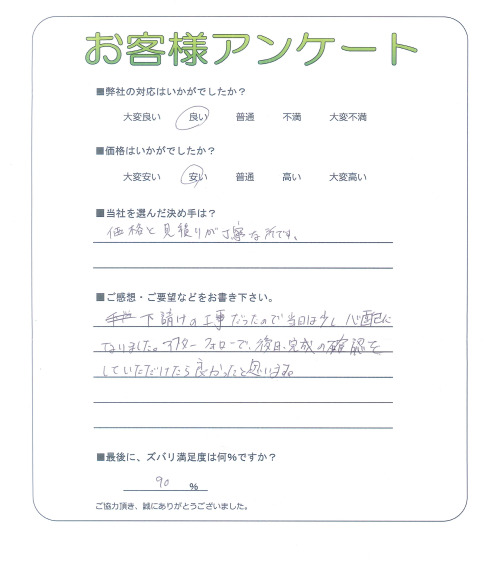 お客様アンケート
■弊社の対応はいかがでしたか?
大変良い 良い 普通 不満 大変不満
■価格はいかがでしたか?
大変安い 安い 普通 高い 大変高い
■当社を選んだ決め手は?
価格と見積りが丁寧な所です。
■ご感想・ご要望などをお書き下さい。
下請けの工事だったので当日は少し心配に
なりました。アフターフォローで、後日、完成の確認を
していただけたら良かったと思います。
■最後に、ズバリ満足度は何%ですか?
90 %
ご協力頂き、誠にありがとうございました。